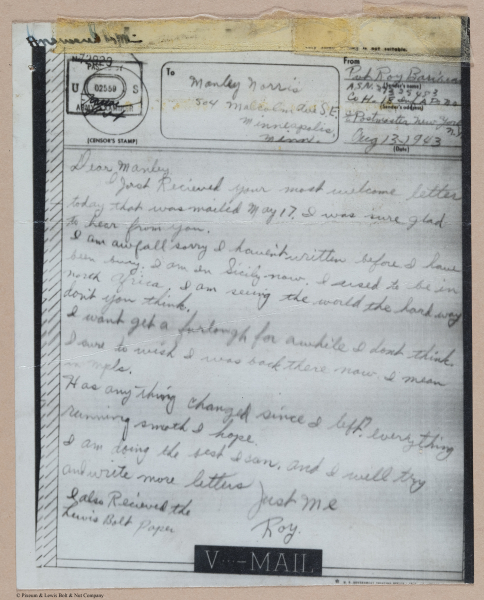 Answered
is not suitable.
N 72823
U S
02559
(CENSOR'S STAMP)
To
Manley Norris
504 Malcolm Ave S.E.
Minneapolis,
Minn.
From
Pvt. Roy
(Sender's name)
A.S.N.
Co H
(Sender's address)
Postmaster New York
N.Y.
Aug 13-1943
(Date)
Dear Manley
I Just Recieved your most welcome letter
today that was mailed May 17. I was sure glad
to hear from you.
I am awfall sorry I haven't written before I have
been busy. I am in Sicily now. I used to be in
north Africa. I am seeing the world the hard way
don't you think.
I want get a furlough for awhile I dont think.
I sure to wish I was back there now. I mean
in mpls.
Has any thing changed since I left? everything
running smoth I hope.
I am doing the best I can, and I well try
and write more letters
Just Me
Roy.
I also Recieved the
Lewis Bolt Paper
V···—MAIL
© Pierson & Lewis Bolt & Nut Company